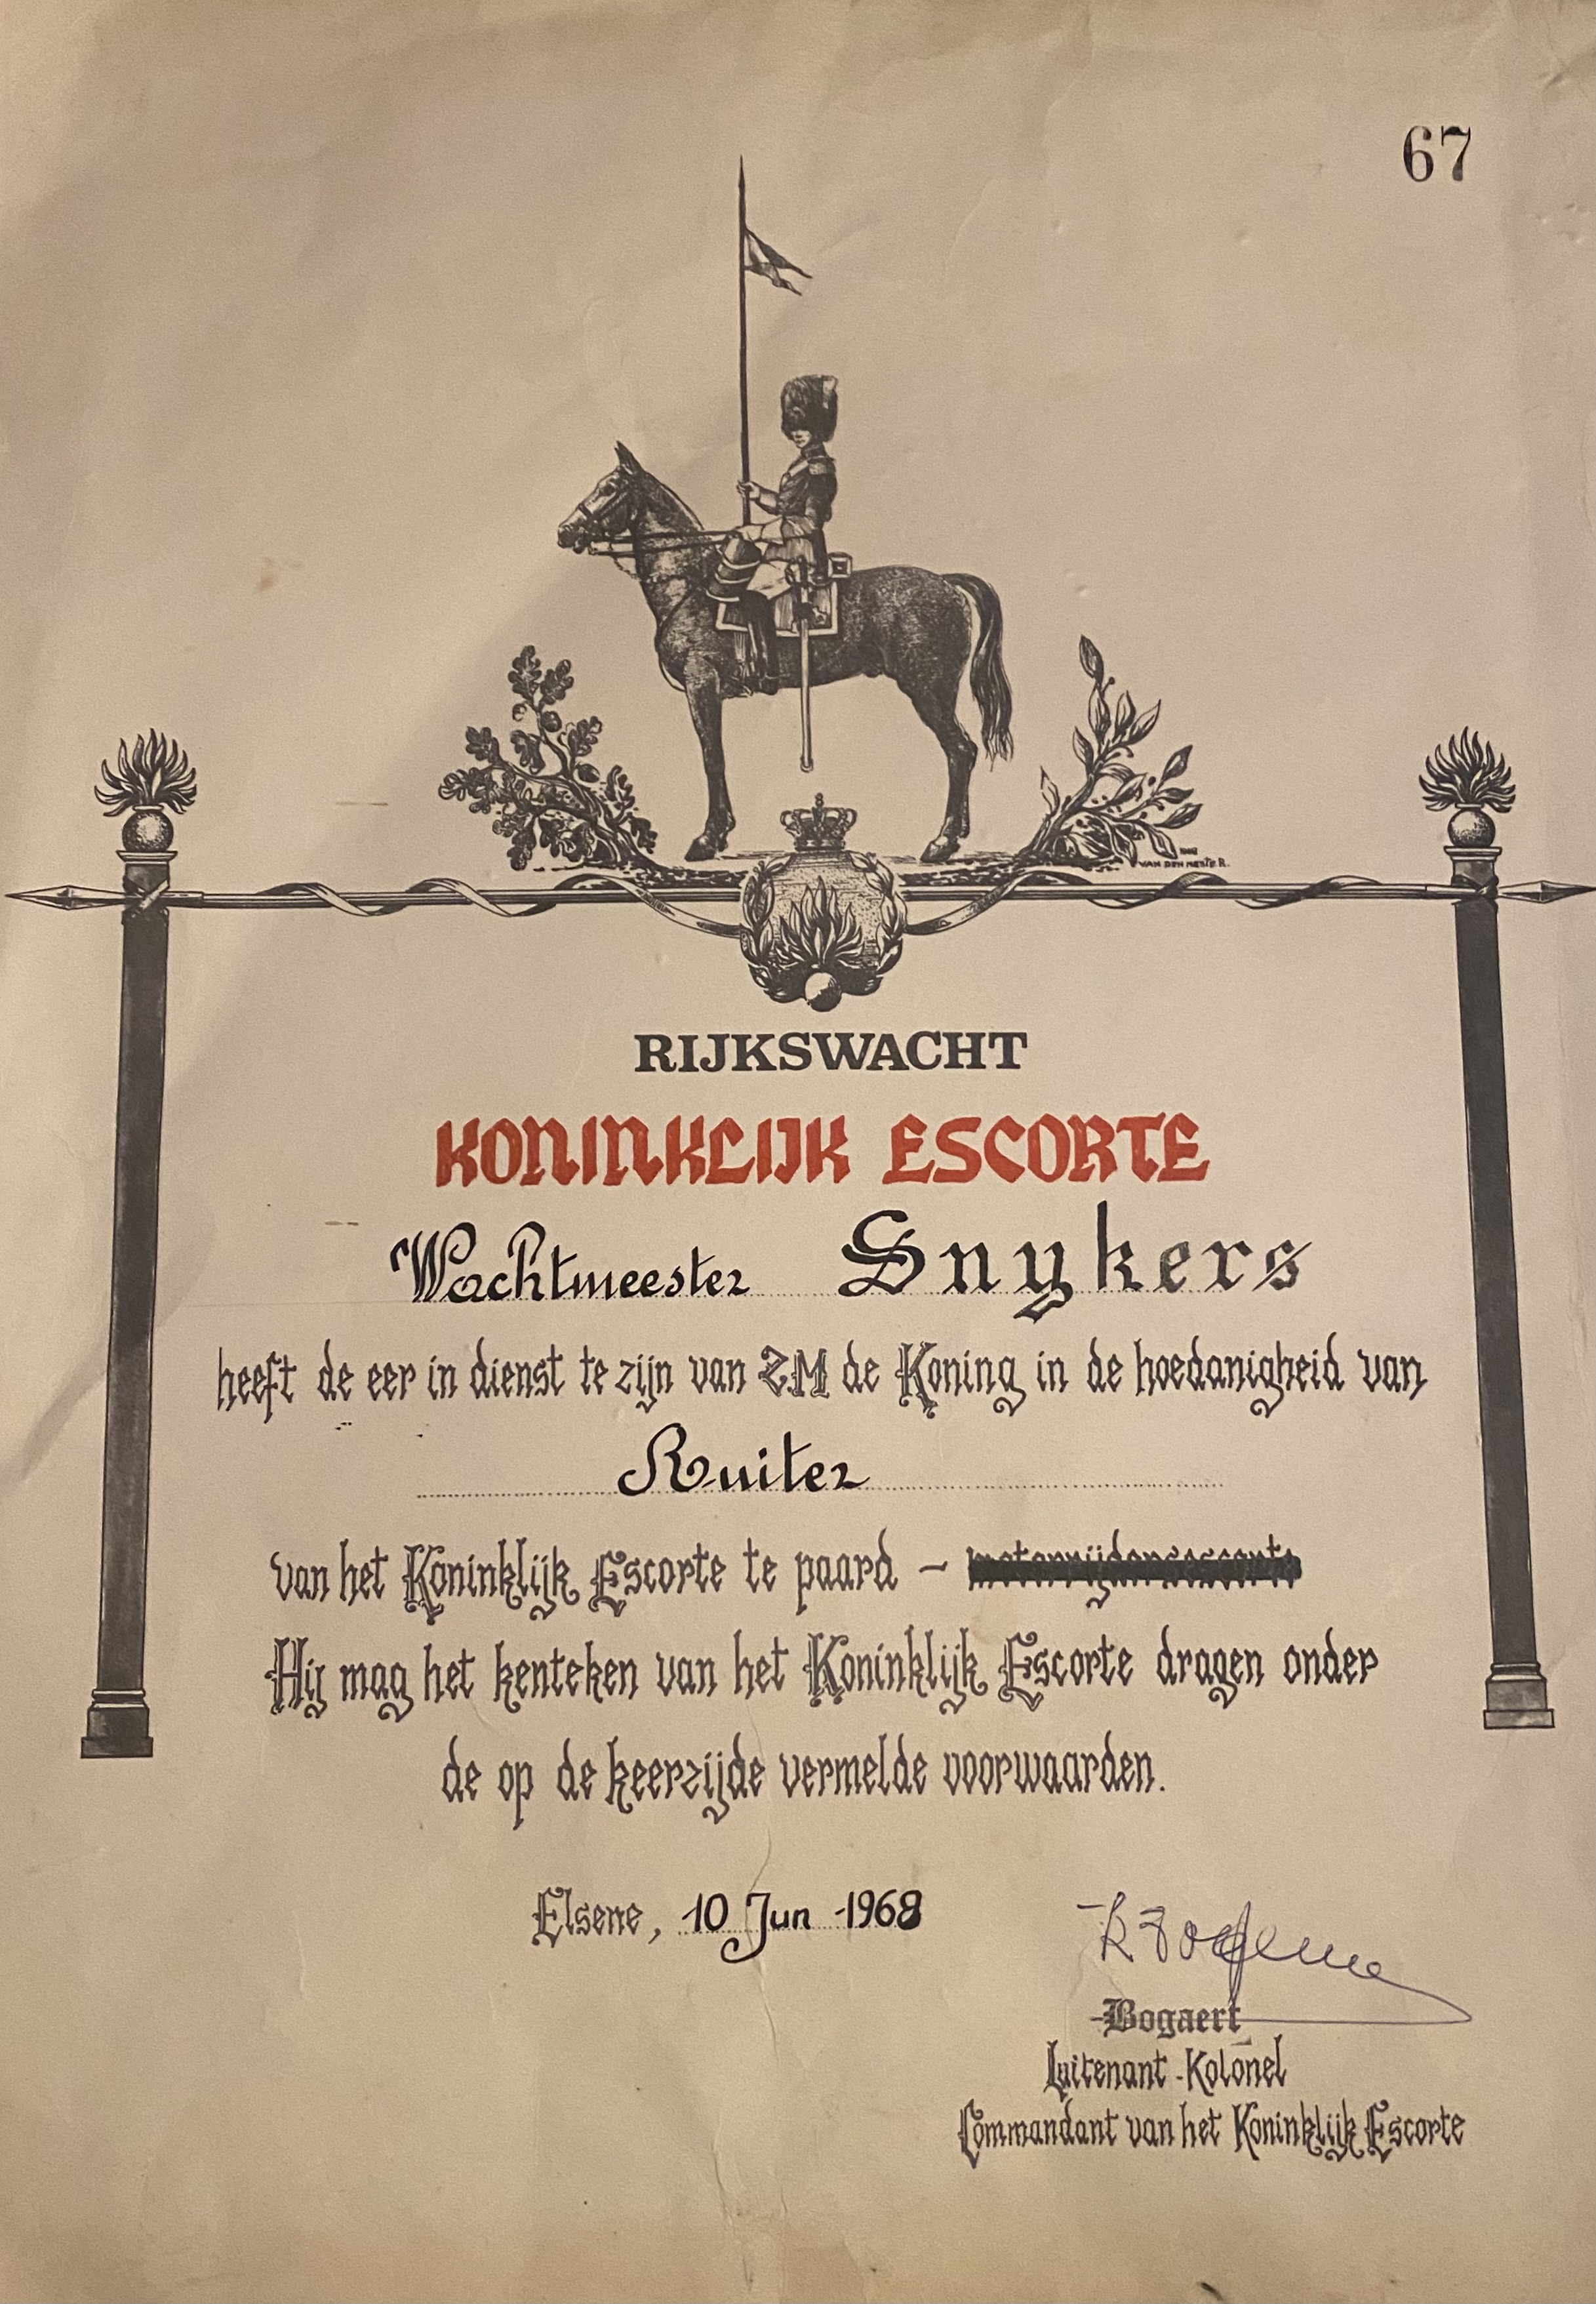 67
VAN DEN MESTER.
RIJKSWACHT
KONINKLIJK ESCORTE
Wachtmeester Snykers
heeft de eer in dienst te zijn van ZM de Koning in de hoedanigheid van
Ruiter
van het Koninklijk Escorte te paard - motorrijdersescorte
Hij mag het kenteken van het Koninklijk Escorte dragen onder
de op de keerzijde vermelde voorwaarden.
Elsene, 10 Jun 1968
-Bogaert
Luitenant-Kolonel
Commandant van het Koninklijk Escorte